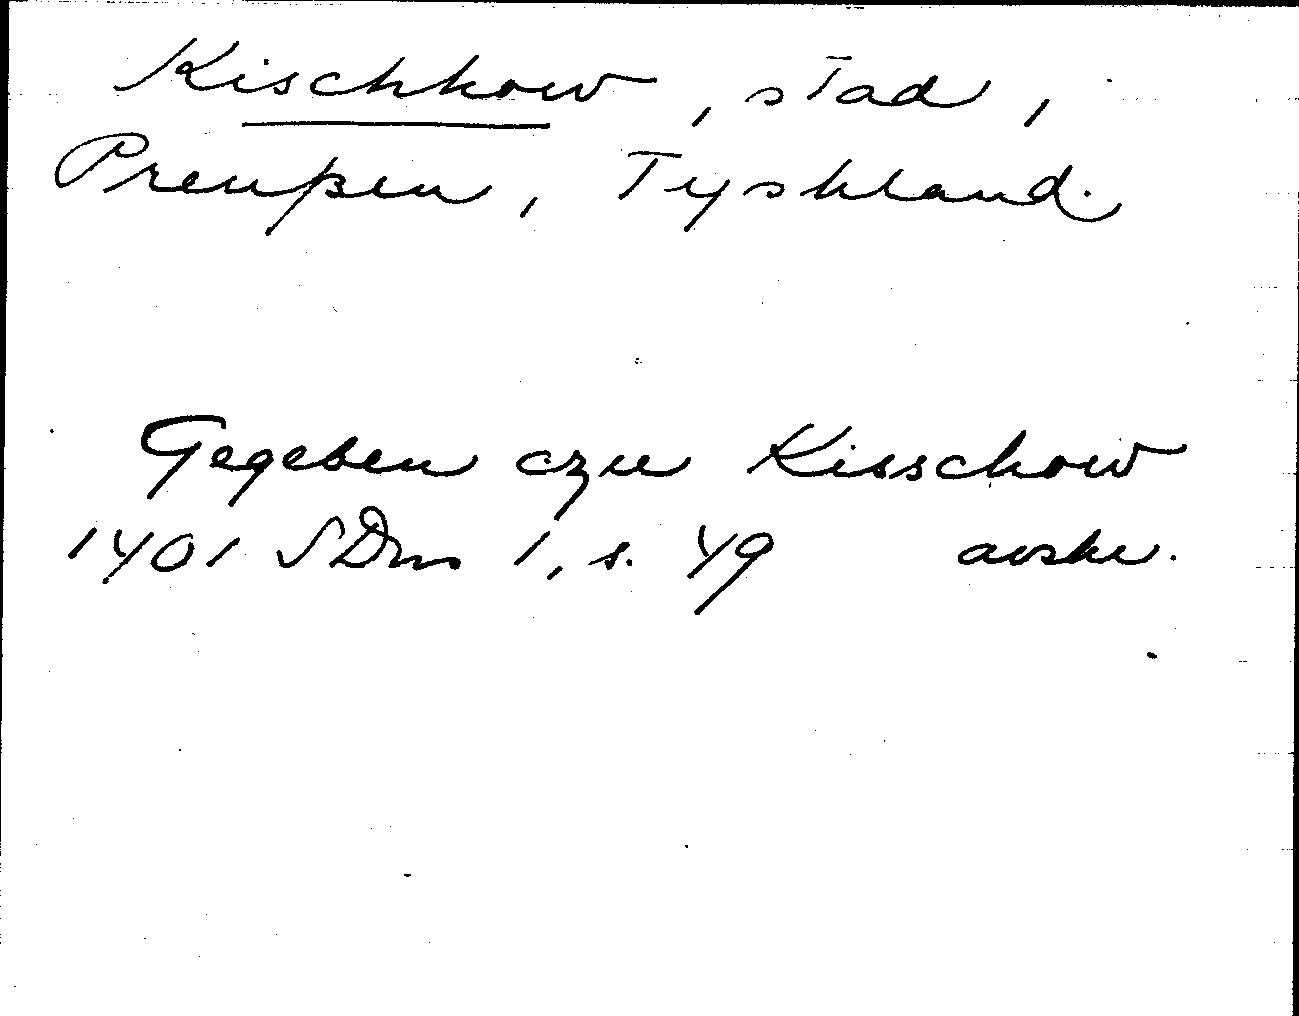 Kischkow, stad,
Preußen, Tyskland.
Gegeben czu Kisschow
1401 SDns 1, s. 49 avskr.